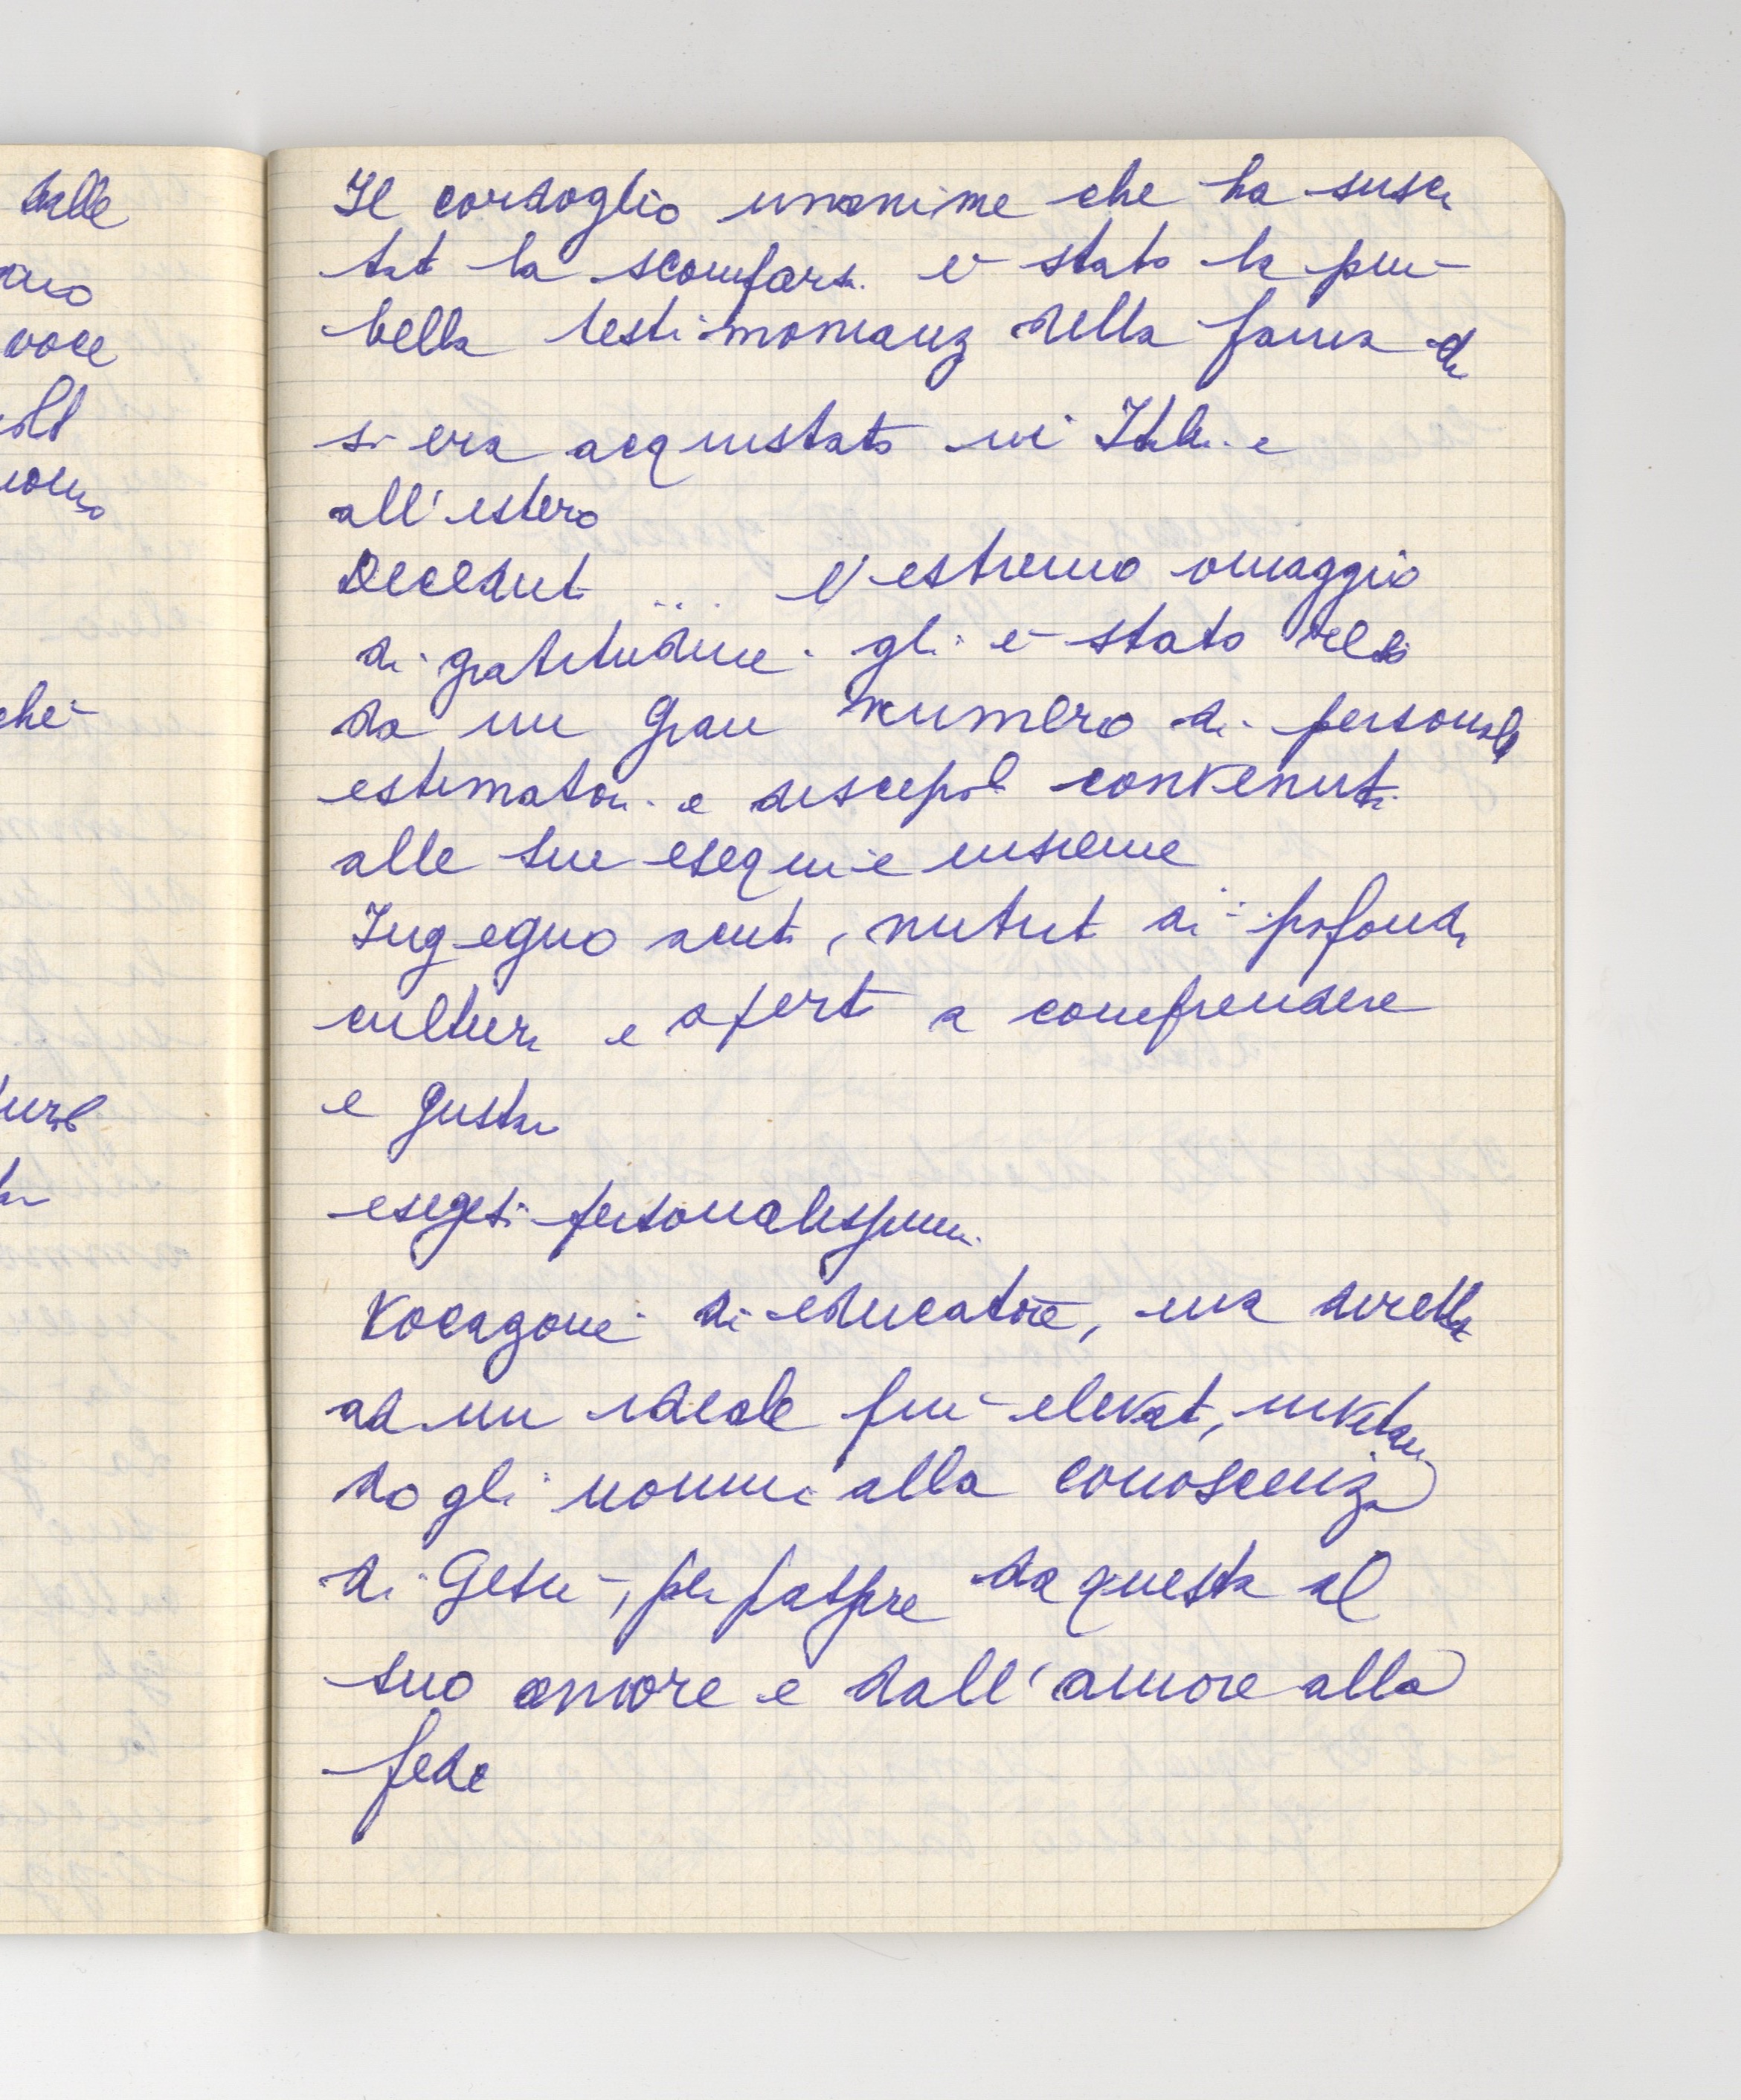 Il cordoglio unanime che ha susci
tat la scomparsa e stato la piu
bella testimonianz della fama che
si era acquistato in Italia e
all'estero
Decedut ... l'estremo omaggio
di gratitudine gli e stato reso
da un gran numero di personali
estimatori e discepoli convenuti
alle sue esequie insieme
Ingegno acuto, nutrit di profonda
cultura e aperto a comprendere
e gustar
esegesi personalissima
Vocazione di educatore, ma diretta
ad un ideale piu elevat, invitan
do gli uomini alla conoscenza
di Gesu, per passare da questa al
suo amore e dall'amore alla
fede
balle
voce
uomo
che